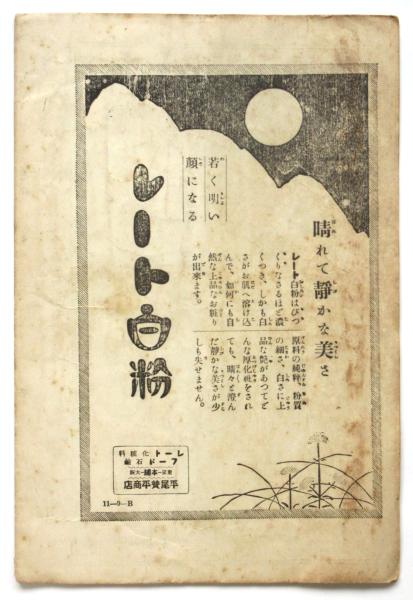 晴れて静かな美さ
レート白粉はぴつ
くりなさるほど濃
くつき、しかも白
さがお肌へ溶け込
んで、如何にも自
然な上品なお粧り
が出来ます。
原料の純粋、粉質
の細さ、白さに上
品な艶があつてど
んな厚化粧をされ
ても、晴々と澄ん
だ静かな美さが少
しも失せません。
若く明い
顔になる
レート白粉
レート化粧料
フード石鹸
東京―本舗―大阪
平尾賛平商店
11―9―B